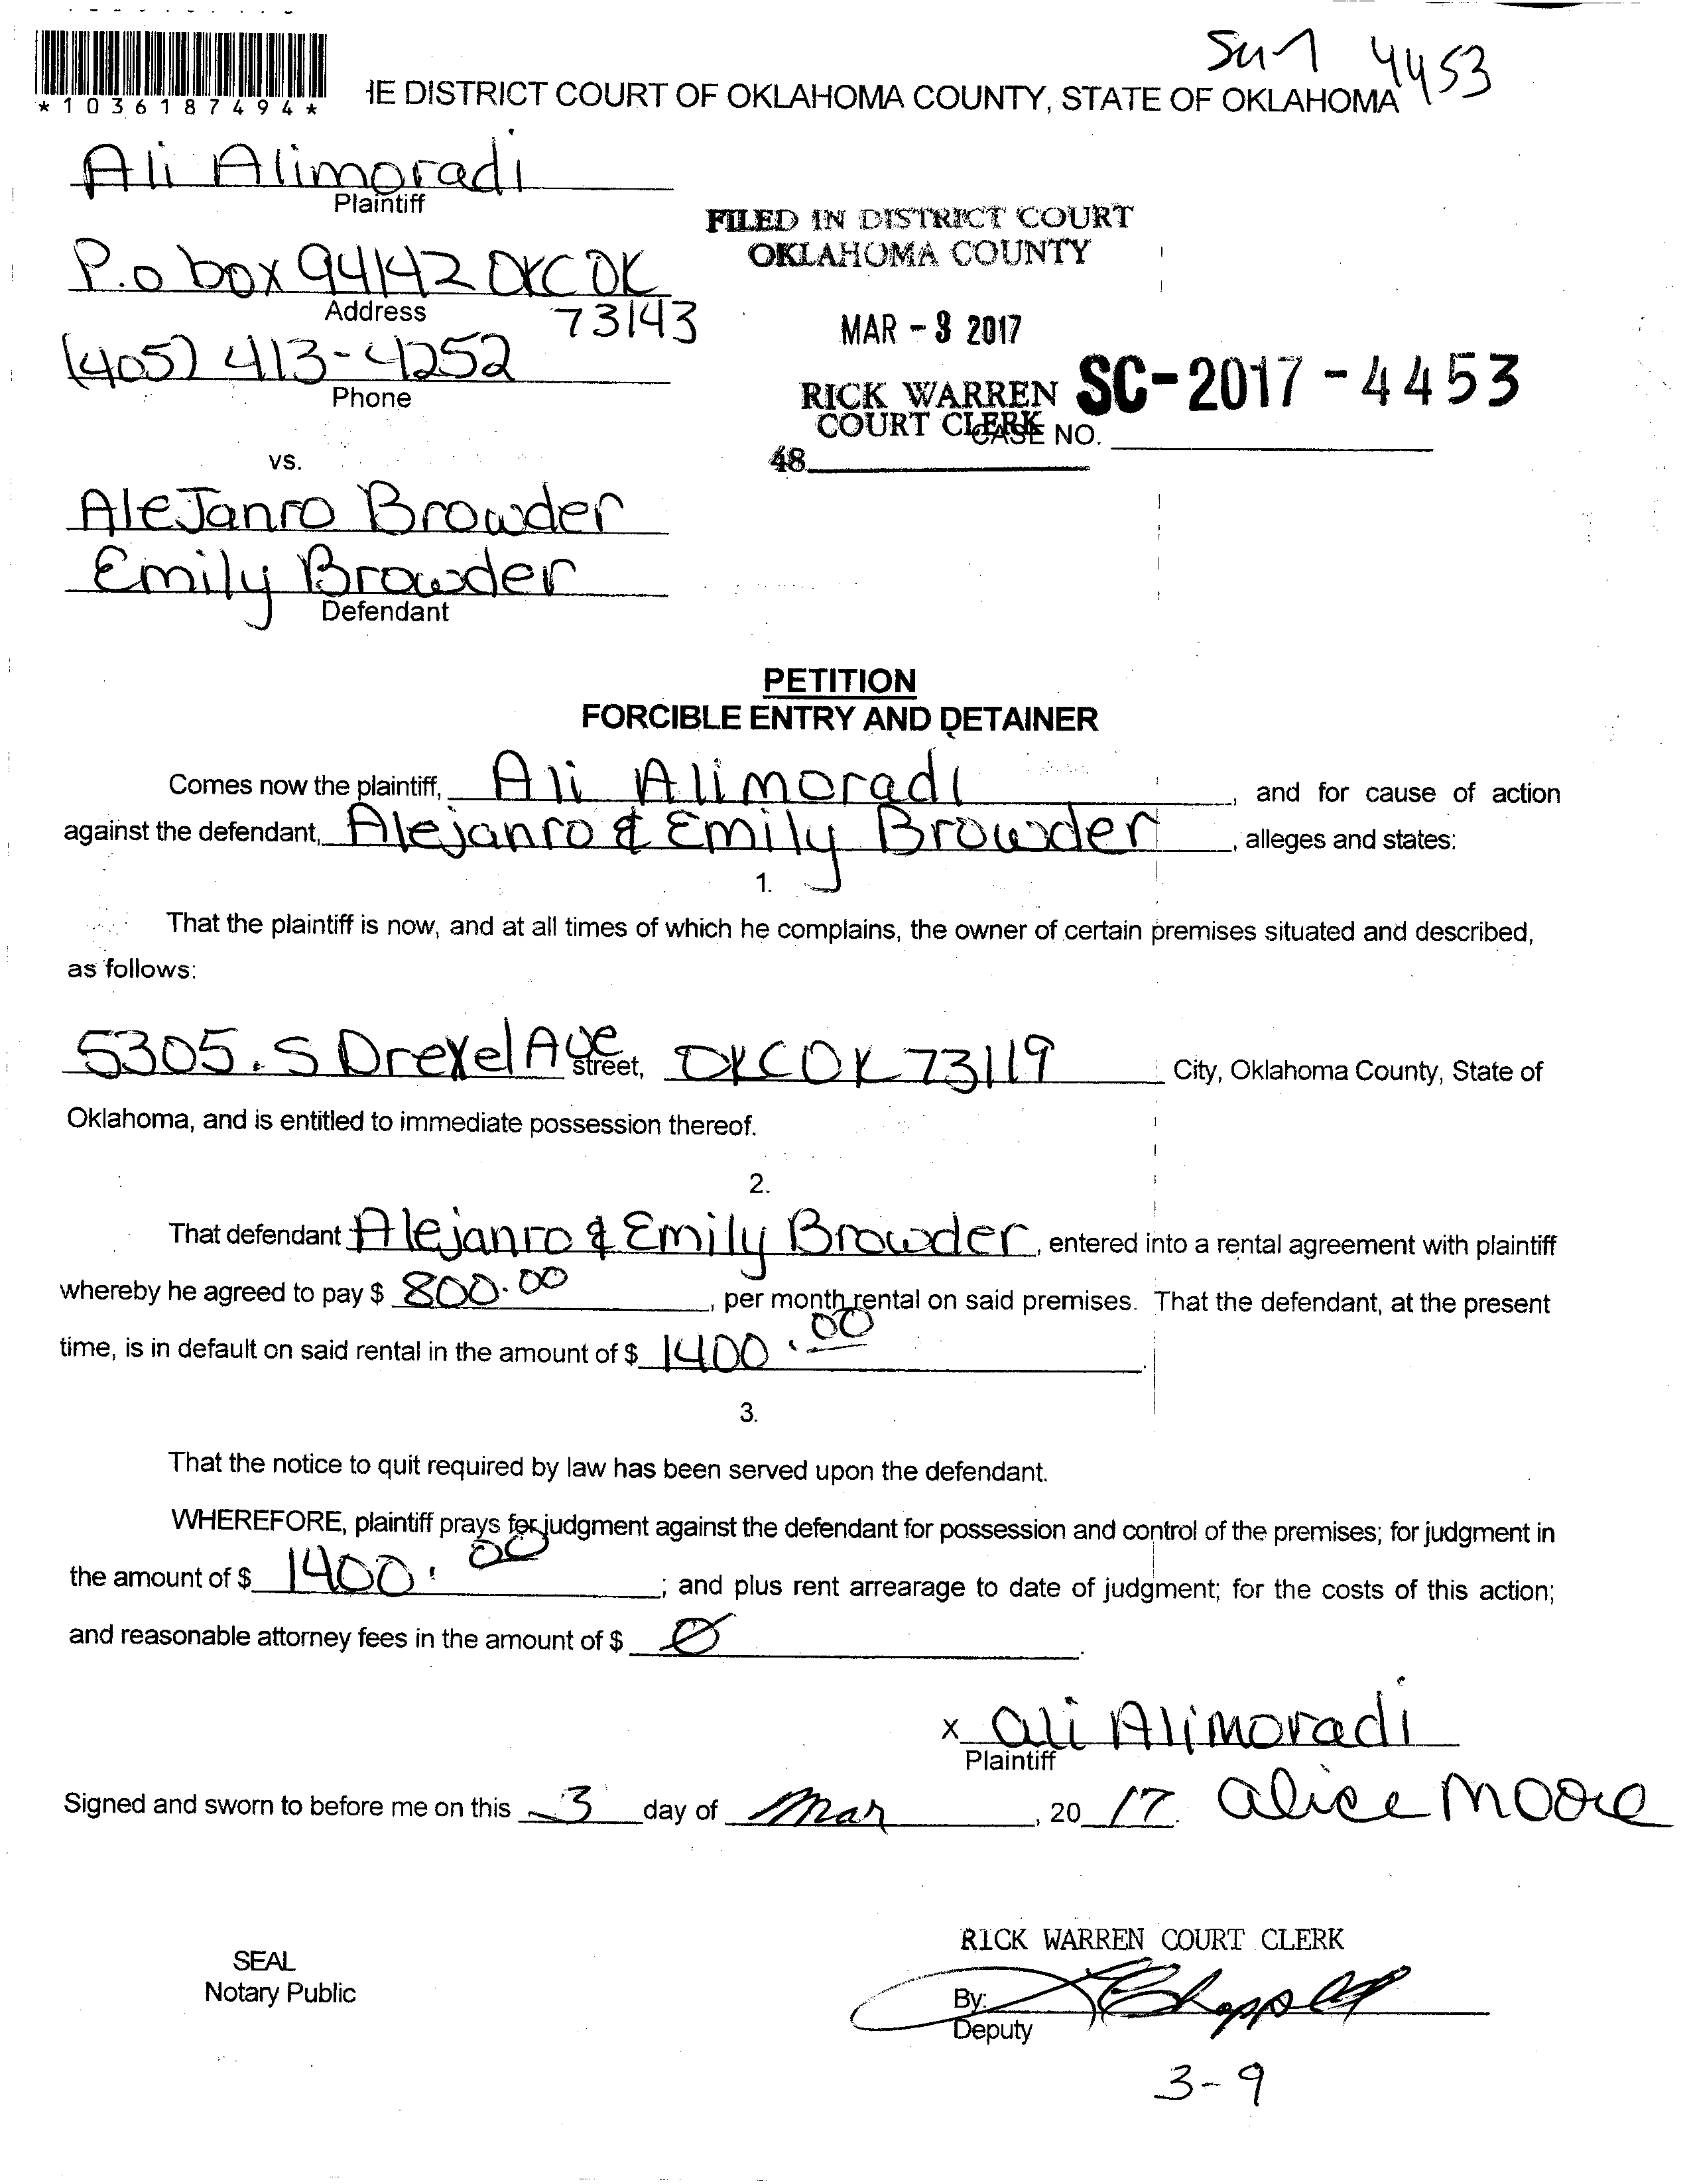 Su-1 4453
*1036187494*
HE DISTRICT COURT OF OKLAHOMA COUNTY, STATE OF OKLAHOMA
Ali Alimoradi
Plaintiff
FILED IN DISTRICT COURT
OKLAHOMA COUNTY
P.o box 94142 OKC OK
Address
73143
MAR - 3 2017
(405) 413-4252
Phone
RICK WARREN
COURT CLERK
SC-2017-4453
CASE NO.
48
vs.
AleJanro Browder
Emily Browder
Defendant
PETITION
FORCIBLE ENTRY AND DETAINER
Comes now the plaintiff, Ali Alimoradi, and for cause of action
against the defendant, Alejanro & Emily Browder, alleges and states:
1.
That the plaintiff is now, and at all times of which he complains, the owner of certain premises situated and described,
as follows:
5305. S Drexel Ave street, OKC OK 73119 City, Oklahoma County, State of
Oklahoma, and is entitled to immediate possession thereof.
2.
That defendant Alejanro & Emily Browder, entered into a rental agreement with plaintiff
whereby he agreed to pay $ 800.00, per month rental on said premises. That the defendant, at the present
time, is in default on said rental in the amount of $ 1400.00.
3.
That the notice to quit required by law has been served upon the defendant.
WHEREFORE, plaintiff prays for judgment against the defendant for possession and control of the premises; for judgment in
the amount of $ 1400.00; and plus rent arrearage to date of judgment; for the costs of this action;
and reasonable attorney fees in the amount of $ Ø.
x Ali Alimoradi
Plaintiff
Signed and sworn to before me on this 3 day of Mar, 20 17. Alice Moore
RICK WARREN COURT CLERK
SEAL
Notary Public
By:
Deputy
3-9